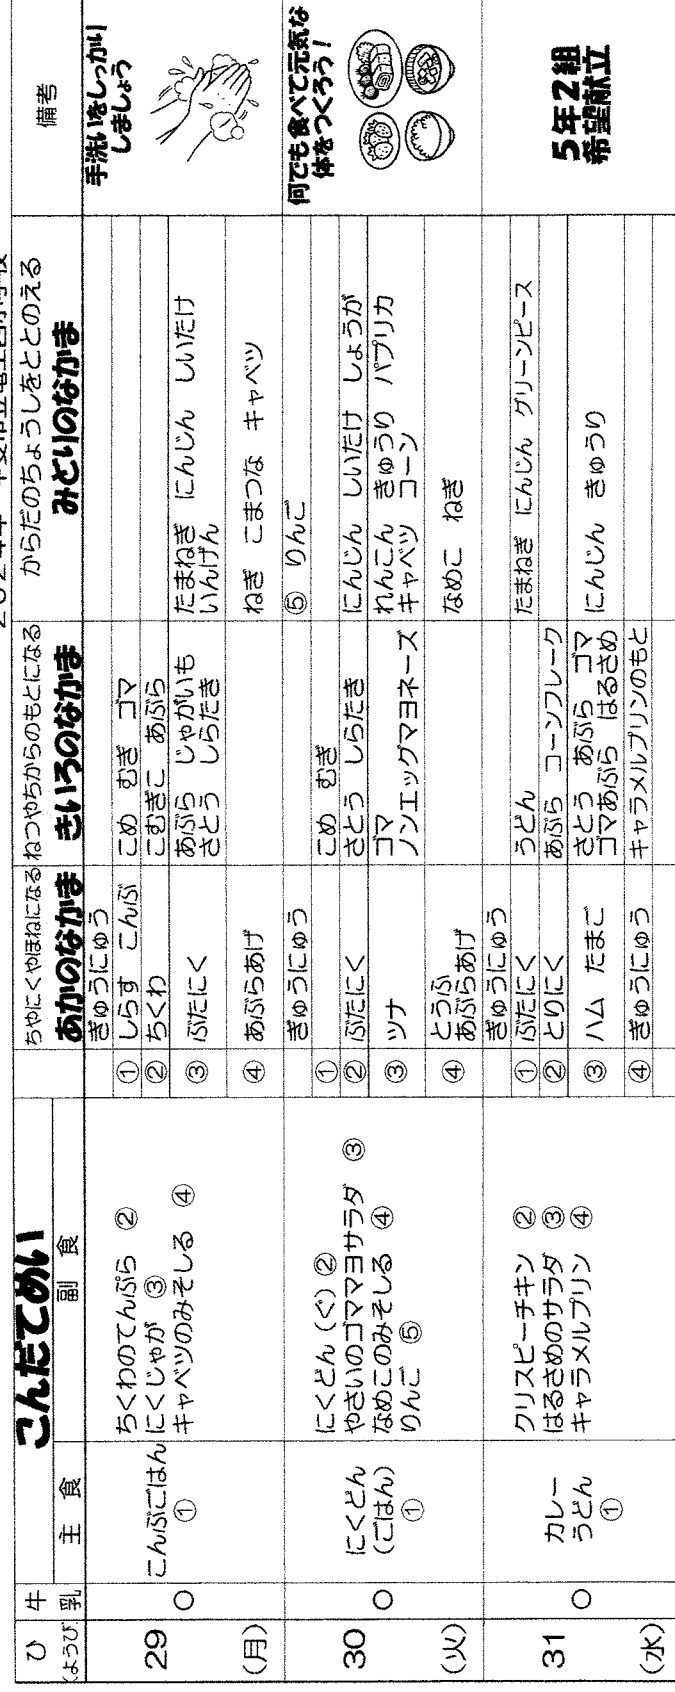 ひ
(ようび)
牛
乳
こんだてめい
主 食
副 食
ちやにくやほねになる
あかのなかま
ねつやちからのもとになる
きいろのなかま
からだのちょうしをととのえる
みどりのなかま
備考
29
(月)
○
こんぶごはん
①
ちくわのてんぷら ②
にくじゃが ③
キャベツのみそしる ④
ぎゅうにゅう
① しらす こんぶ
こめ むぎ ゴマ
② ちくわ
こむぎこ あぶら
③ ぶたにく
あぶら じゃがいも
さとう しらたき
たまねぎ にんじん しいたけ
いんげん
④ あぶらあげ
ねぎ こまつな キャベツ
手洗いをしっかり
しましょう
30
(火)
○
にくどん
(ごはん)
①
にくどん(ぐ) ②
やさいのゴママヨサラダ ③
なめこのみそしる ④
りんご ⑤
ぎゅうにゅう
⑤ りんご
①
こめ むぎ
② ぶたにく
さとう しらたき
にんじん しいたけ しょうが
③ ツナ
ゴマ
ノンエッグマヨネーズ
れんこん きゅうり パプリカ
キャベツ コーン
④ とうふ
あぶらあげ
なめこ ねぎ
何でも食べて元気な
体をつくろう!
31
(水)
○
カレー
うどん
①
クリスピーチキン ②
はるさめのサラダ ③
キャラメルプリン ④
ぎゅうにゅう
① ぶたにく
うどん
たまねぎ にんじん グリーンピース
② とりにく
あぶら コーンフレーク
③ ハム たまご
さとう あぶら ゴマ
ゴマあぶら はるさめ
にんじん きゅうり
④ ぎゅうにゅう
キャラメルプリンのもと
5年2組
希望献立